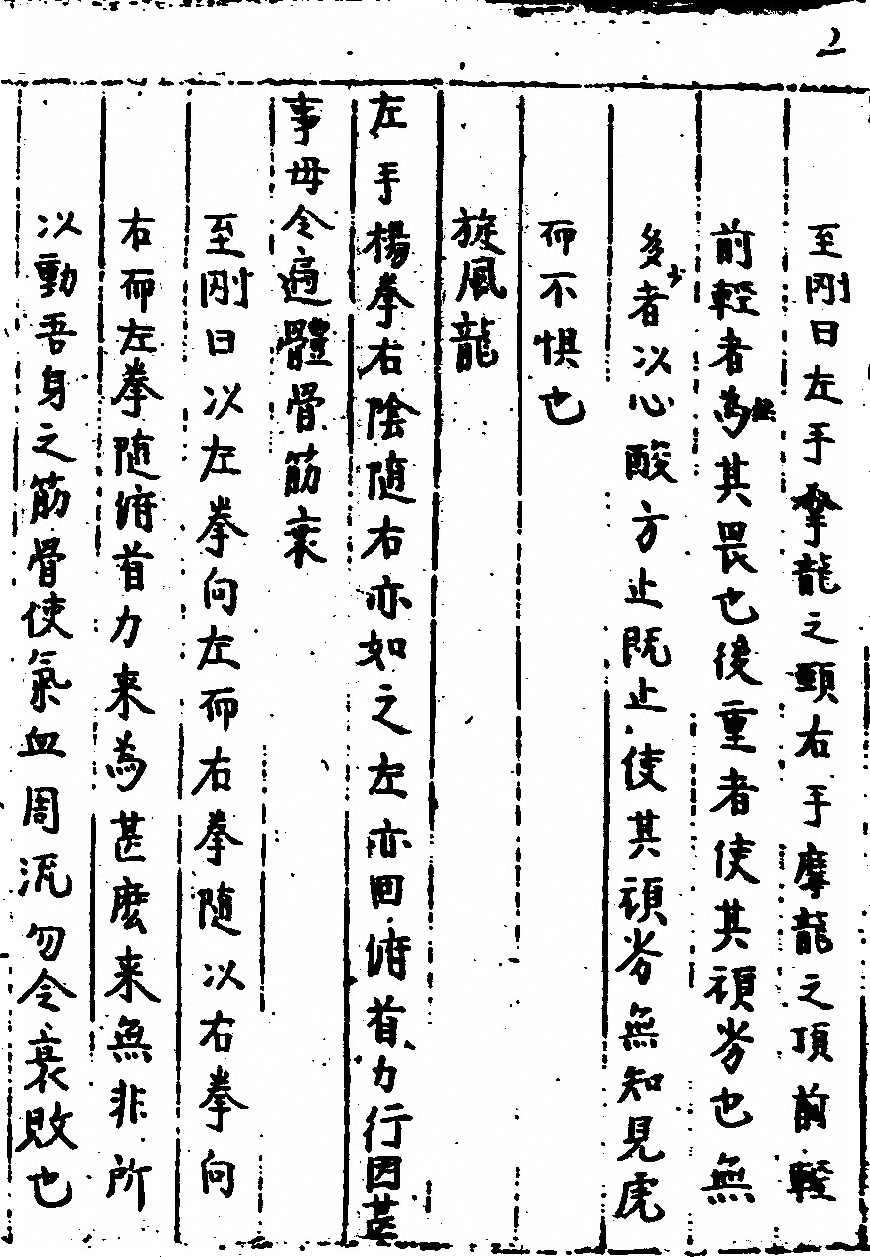 至剛曰左手擎龍之頸右手摩龍之項前輕
前輕者為其畏也後重者使其頑劣也無
多少者以心酸方止既止使其頑劣無知見虎
而不惧也
旋風龍
左手楊拳右陰隨右亦如之左亦回俯首力行因甚
事毋令過體骨筋衰
至剛曰以左拳向左而右拳隨以右拳向
右而左拳隨俯首力来為甚麽来無非所
以動吾身之筋骨使氣血周流勿令衰敗也